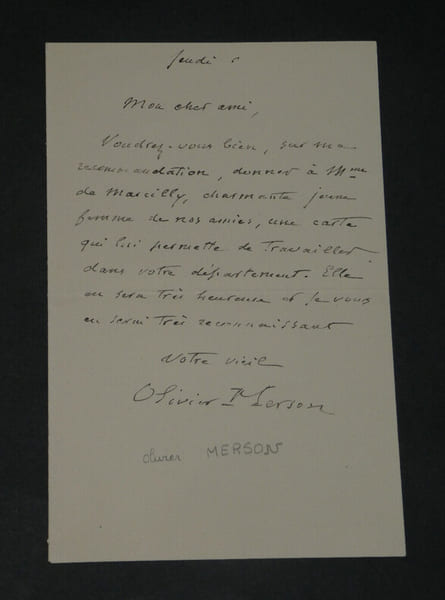 Jeudi
Mon cher ami,
Voudrez-vous bien, sur ma
recommandation, donner à Mme
de Marcilly, charmante jeune
femme de nos amies, une carte
qui lui permette de travailler
dans votre département. Elle
en sera très heureuse et je vous
en serai très reconnaissant
Votre vieil
Olivier Merson
Olivier MERSON